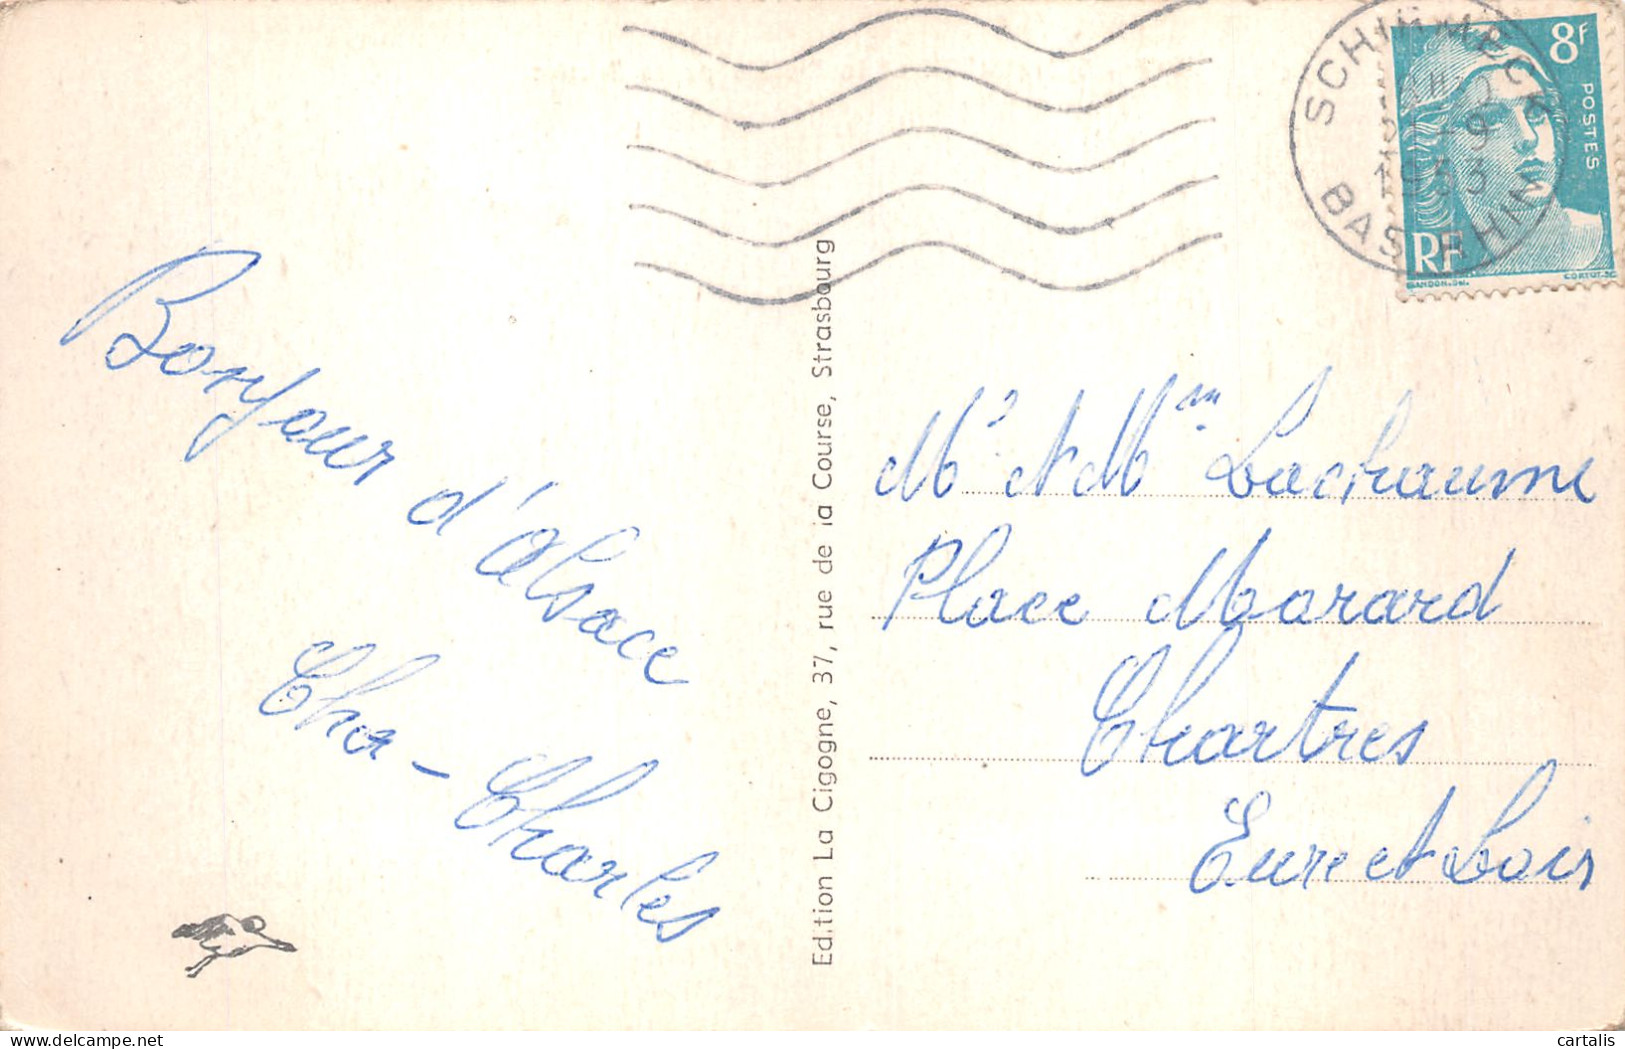 Bonjour d'alsace
Charles
Edition La Cigogne, 37, rue de la Course, Strasbourg
SCHIRMECK
1953
BAS RHIN
8F
POSTES
RF
GANDON.DEL.
CORTOT.SC
Mr et Mme Lachaume
Place Morard
Chartres
Eure et Loir
cartalis